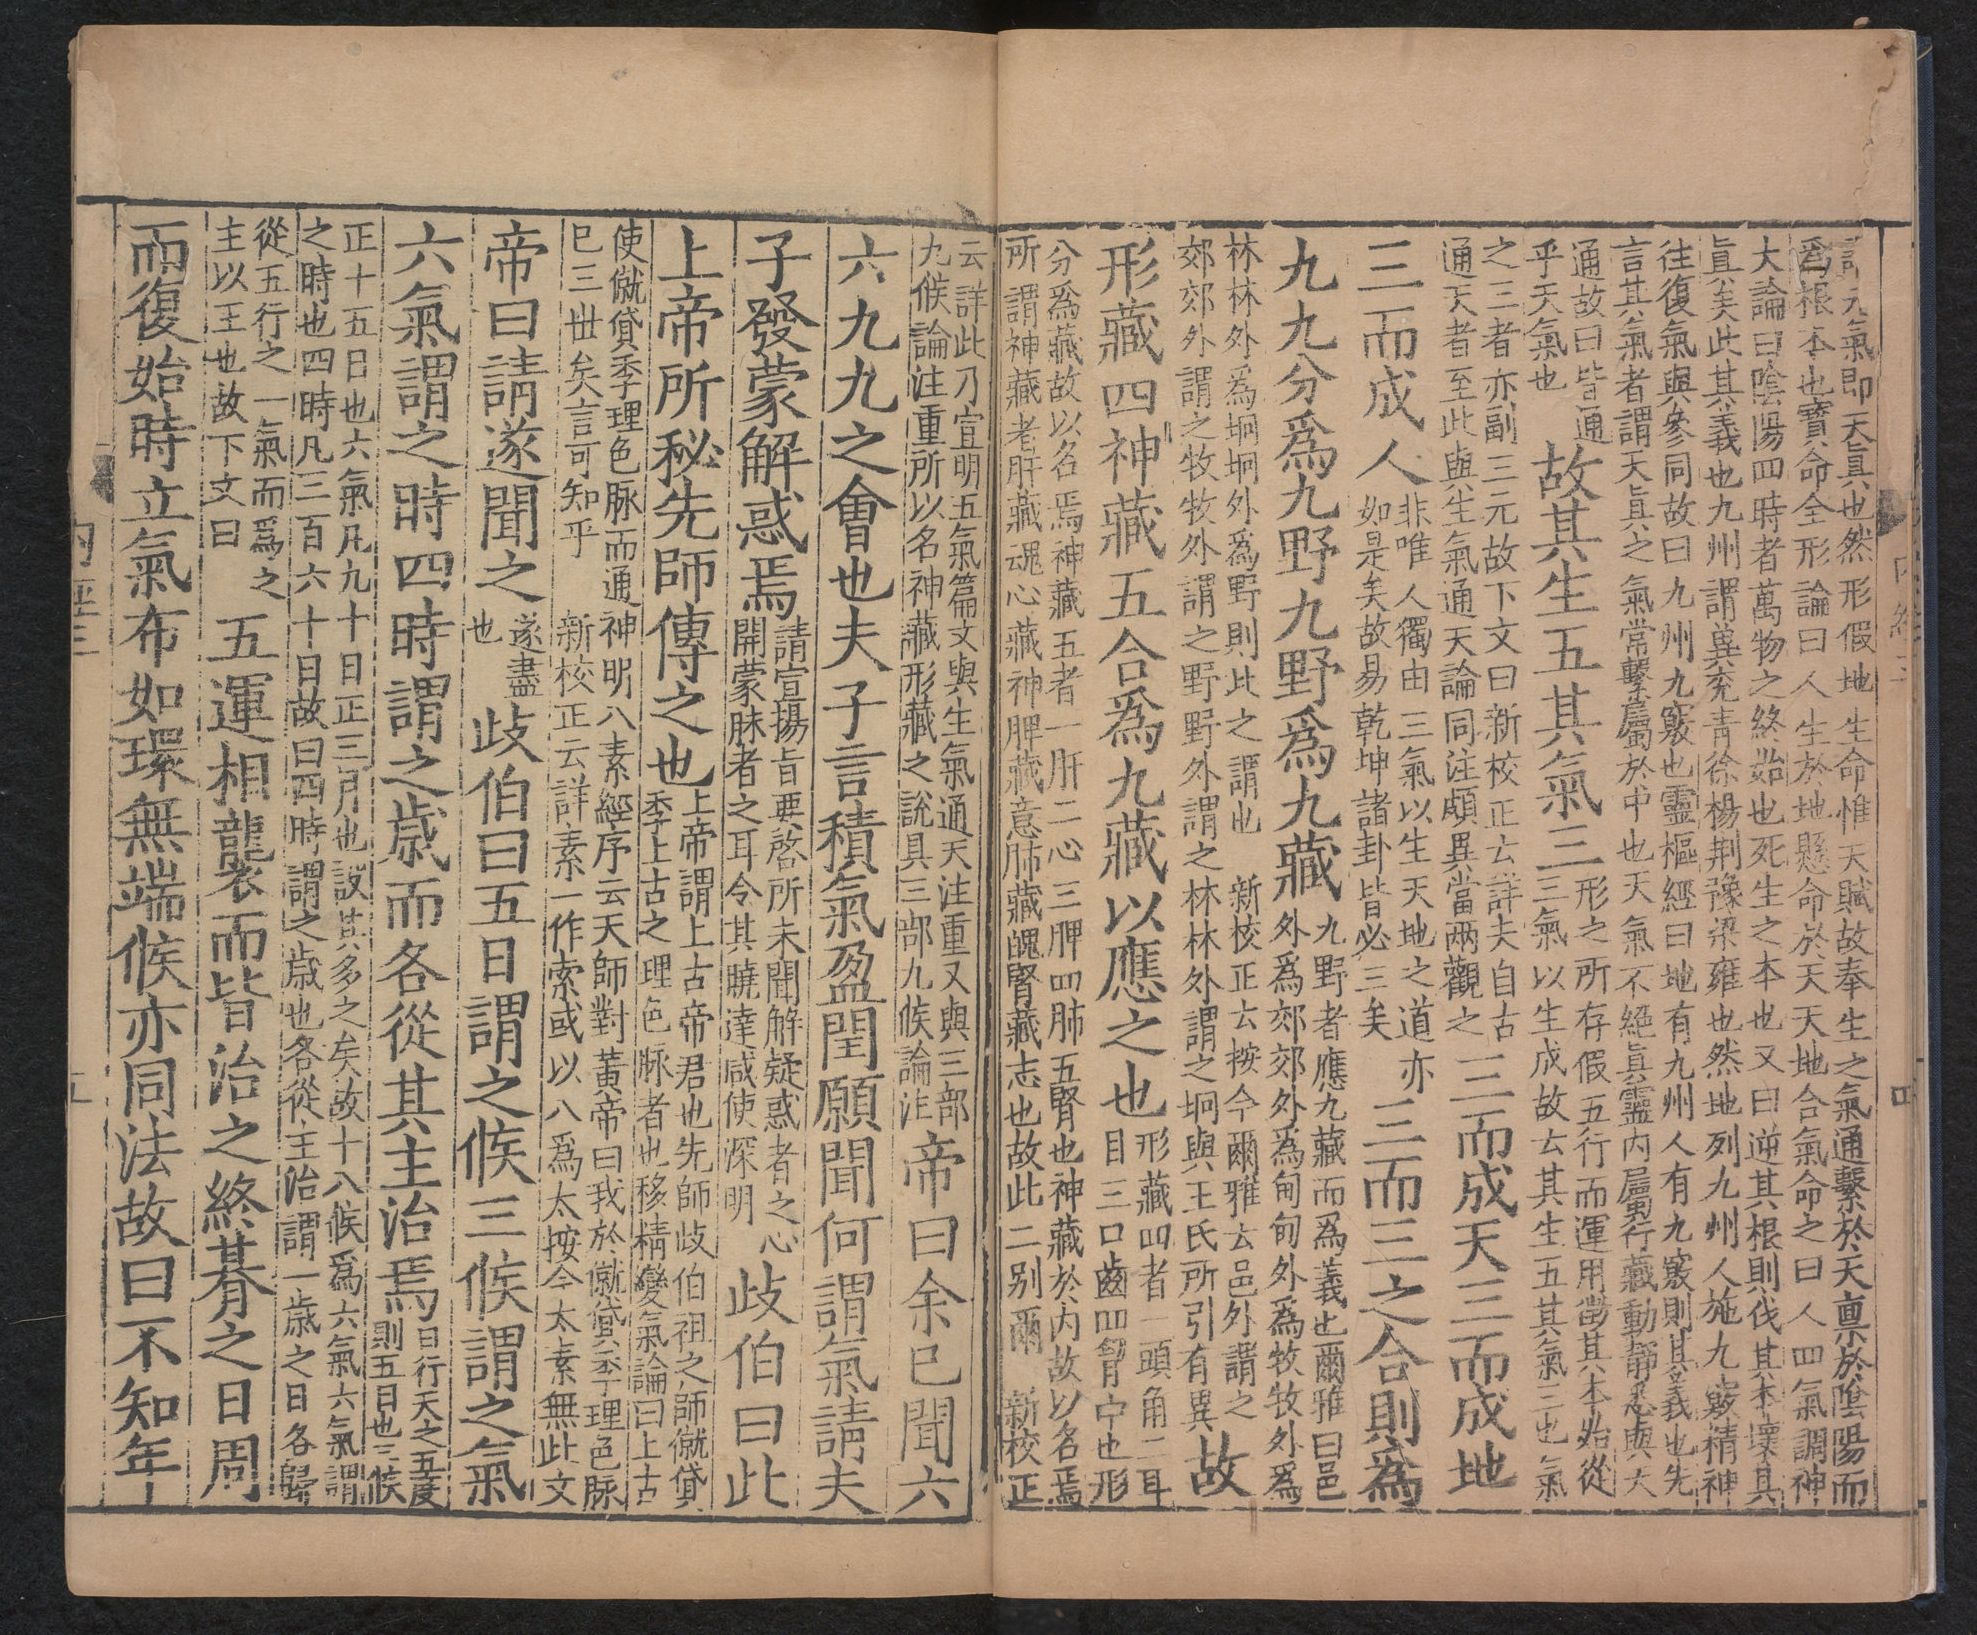 謂元氣即天真也然形假地生命惟天賦故奉生之氣通繫於天稟於陰陽而
爲根本也寶命全形論曰人生於地懸命於天天地合氣命之曰人四氣調神
大論曰陰陽四時者萬物之終始也死生之本也又曰逆其根則伐其本壞其
眞矣此其義也九州謂冀兖青徐楊荆豫梁雍也然地列九州人施九竅精神
往復氣與參同故曰九州九竅也靈樞經曰地有九州人有九竅則其義也先
言其氣者謂天眞之氣常繫屬於中也天氣不絕眞靈内屬行藏動靜悉與天
通故曰皆通
乎天氣也
故其生五其氣三
形之所存假五行而運用徵其本始從
三氣以生成故云其生五其氣三也氣
之三者亦副三元故下文曰新校正云詳夫自古
通天者至此與生氣通天論同注頗異當兩觀之
三而成天三而成地
三而成人
非唯人獨由三氣以生天地之道亦
如是矣故易乾坤諸卦皆必三矣
三而三之合則爲
九九分爲九野九野爲九藏
九野者應九藏而爲義也爾雅曰邑
外爲郊郊外爲甸甸外爲牧牧外爲
林林外爲坰坰外爲野則此之謂也　新校正云按今爾雅云邑外謂之
郊郊外謂之牧牧外謂之野野外謂之林林外謂之坰與王氏所引有異
故
形藏四神藏五合爲九藏以應之也
形藏四者一頭角二耳
目三口齒四胷中也形
分爲藏故以名焉神藏五者一肝二心三脾四肺五腎也神藏於内故以名焉
所謂神藏者肝藏魂心藏神脾藏意肺藏魄腎藏志也故此二别爾　新校正
云詳此乃宣明五氣篇文與生氣通天注重又與三部
九候論注重所以名神藏形藏之說具三部九候論注
帝曰余已聞六
六九九之會也夫子言積氣盈閏願聞何謂氣請夫
子發蒙解惑焉
請宣揚旨要啓所未聞解疑惑者之心
開蒙昧者之耳令其曉達咸使深明
歧伯曰此
上帝所秘先師傳之也
上帝謂上古帝君也先師歧伯祖之師僦貸
季上古之理色脉者也移精變氣論曰上古
使僦貸季理色脉而通神明八素經序云天師對黃帝曰我於僦貸季理色脉
已三世矣言可知乎　新校正云詳素一作索或以八爲太按今太素無此文
帝曰請遂聞之
遂盡
也
歧伯曰五日謂之候三候謂之氣
六氣謂之時四時謂之歲而各從其主治焉
日行天之五度
則五日也三候
正十五日也六氣凡九十日正三月也設其多之矣故十八候爲六氣六氣謂
之時也四時凡三百六十日故曰四時謂之歲也各從主治謂一歲之日各歸
從五行之一氣而爲之
主以王也故下文曰
五運相襲而皆治之終朞之日周
而復始時立氣布如環無端候亦同法故曰不知年